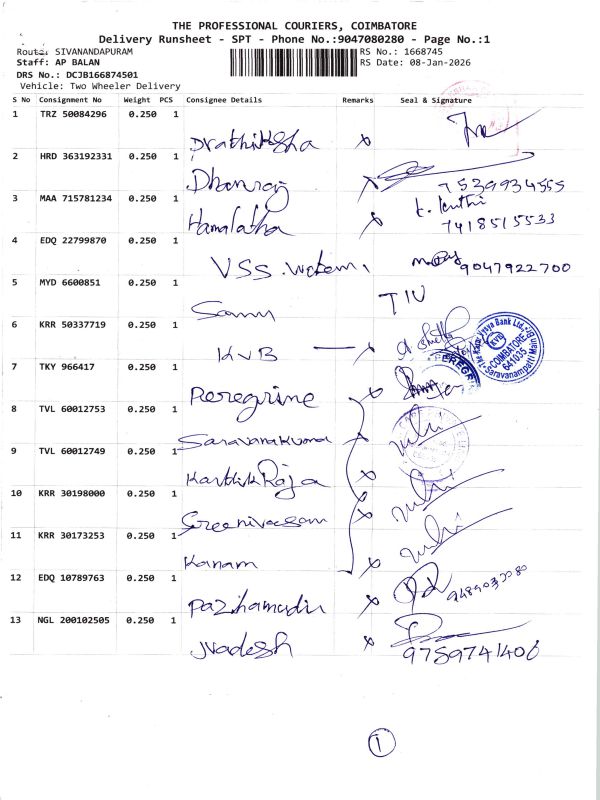 THE PROFESSIONAL COURIERS, COIMBATORE
Delivery Runsheet - SPT - Phone No.:9047080280 - Page No.:1
Route: SIVANANDAPURAM
RS No.: 1668745
Staff: AP BALAN
RS Date: 08-Jan-2026
DRS No.: DCJB166874501
Vehicle: Two Wheeler Delivery
S No Consignment No Weight PCS Consignee Details Remarks Seal & Signature
1 TRZ 50084296 0.250 1
Prathiksha
2 HRD 363192331 0.250 1
Dhanraj
7539934555
3 MAA 715781234 0.250 1
Hamalatha
7418515533
4 EDQ 22799870 0.250 1
VSS
9047922700
5 MYD 6600851 0.250 1
6 KRR 50337719 0.250 1
KVB
Karur Vysya Bank Ltd.,
KVB
COIMBATORE
641035
Saravanampatti Main Br.
7 TKY 966417 0.250 1
Peregrine
PEREGRINE
8 TVL 60012753 0.250 1
Saravanakumar
9 TVL 60012749 0.250 1
Karthik Raja
10 KRR 30198000 0.250 1
Sreenivasan
11 KRR 30173253 0.250 1
Kanam
12 EDQ 10789763 0.250 1
Pazhamudir
13 NGL 200102505 0.250 1
9789741406
1